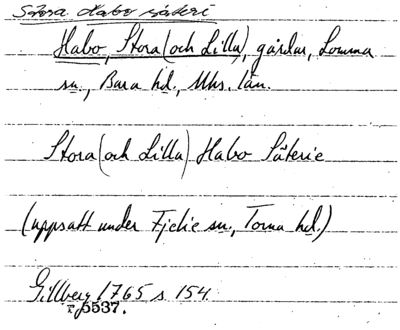 Stora Habo säteri
Habo, Stora (och Lilla), gårdar, Lomma
sn., Bara hd., Mhs. län.
Stora (och Lilla) Habo Säterie
(uppsatt under Fjelie sn., Torna hd.)
Gillberg 1765 s 154.
5537.